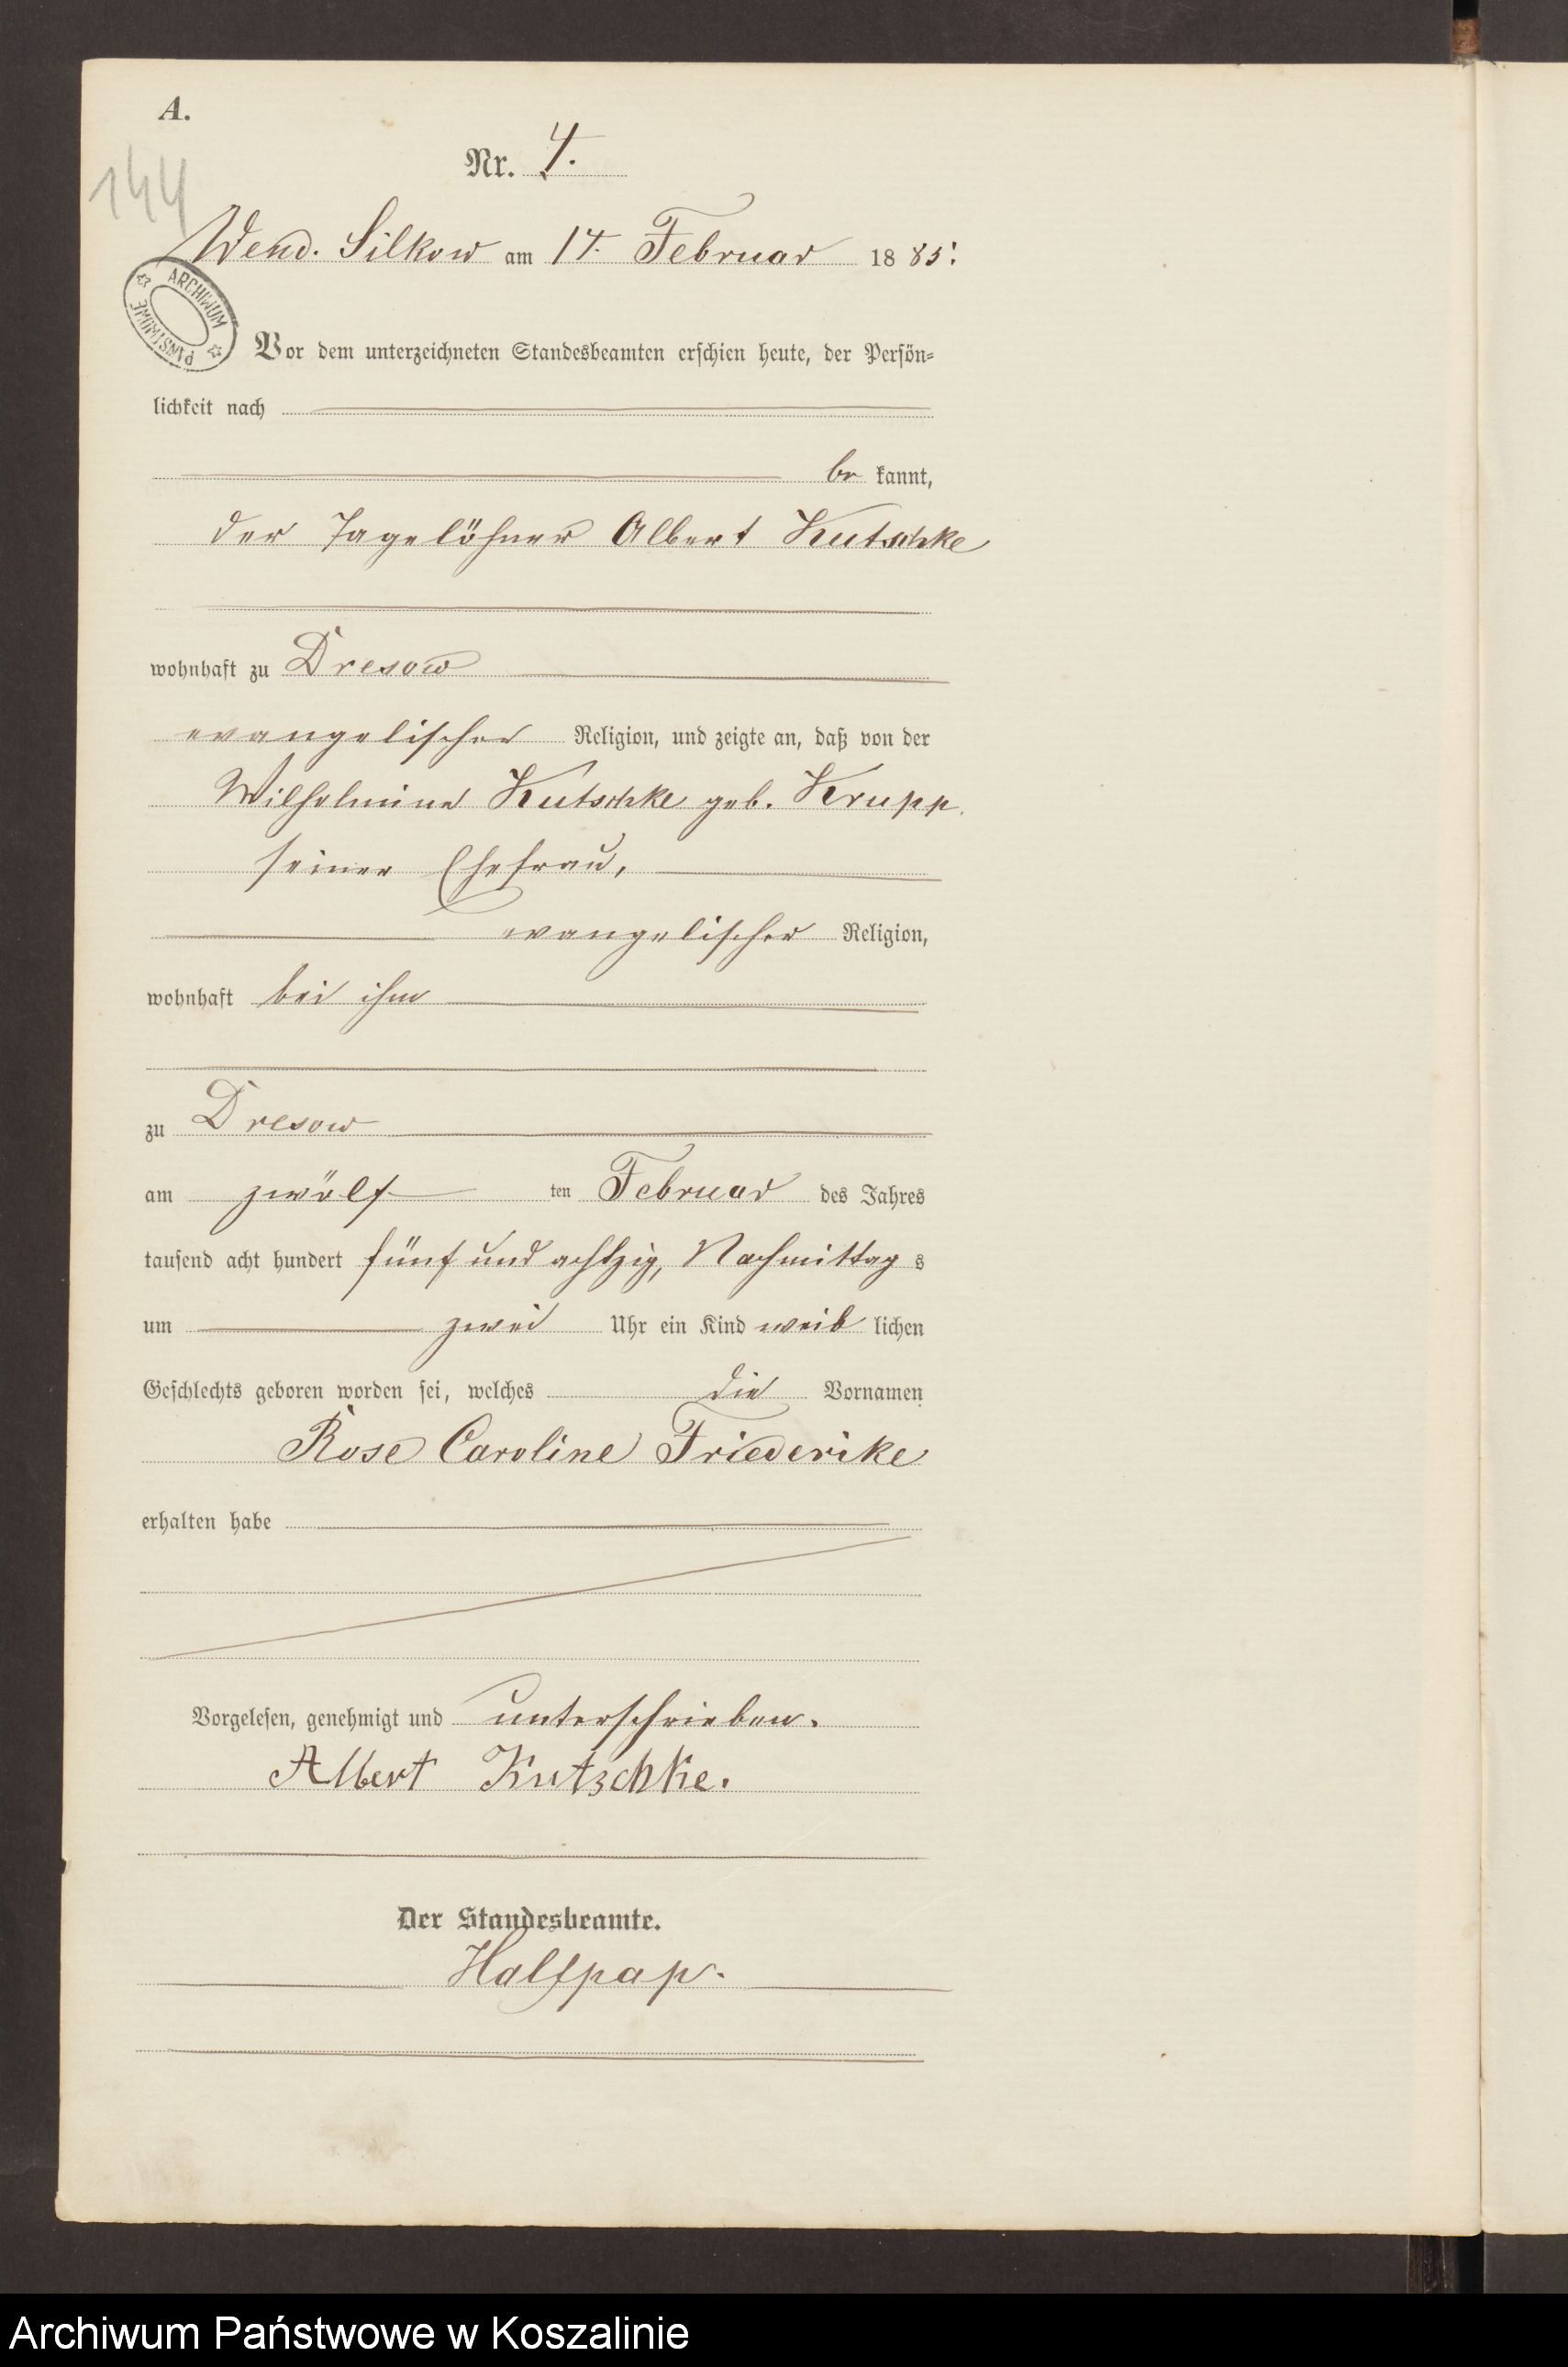 A.
Nr. 4.
144
Wend. Silkow am 14. Februar 1885.
ARCHIWUM PAŃSTWOWE
Vor dem unterzeichneten Standesbeamten erschien heute, der Persön-
lichkeit nach
be kannt,
der Tagelöhner Albert Kutschke
wohnhaft zu Dresow
evangelischer Religion, und zeigte an, daß von der
Wilhelmine Kutschke geb. Krupp,
seiner Ehefrau,
evangelischer Religion,
wohnhaft bei ihm
zu Dresow
am zwölf ten Februar des Jahres
tausend acht hundert fünf und achtzig, Nachmittag s
um zwei Uhr ein Kind weib lichen
Geschlechts geboren worden sei, welches die Vornamen
Rose Caroline Friederike
erhalten habe
Vorgelesen, genehmigt und unterschrieben.
Albert Kutzschke.
Der Standesbeamte.
Halfpap.
Archiwum Państwowe w Koszalinie